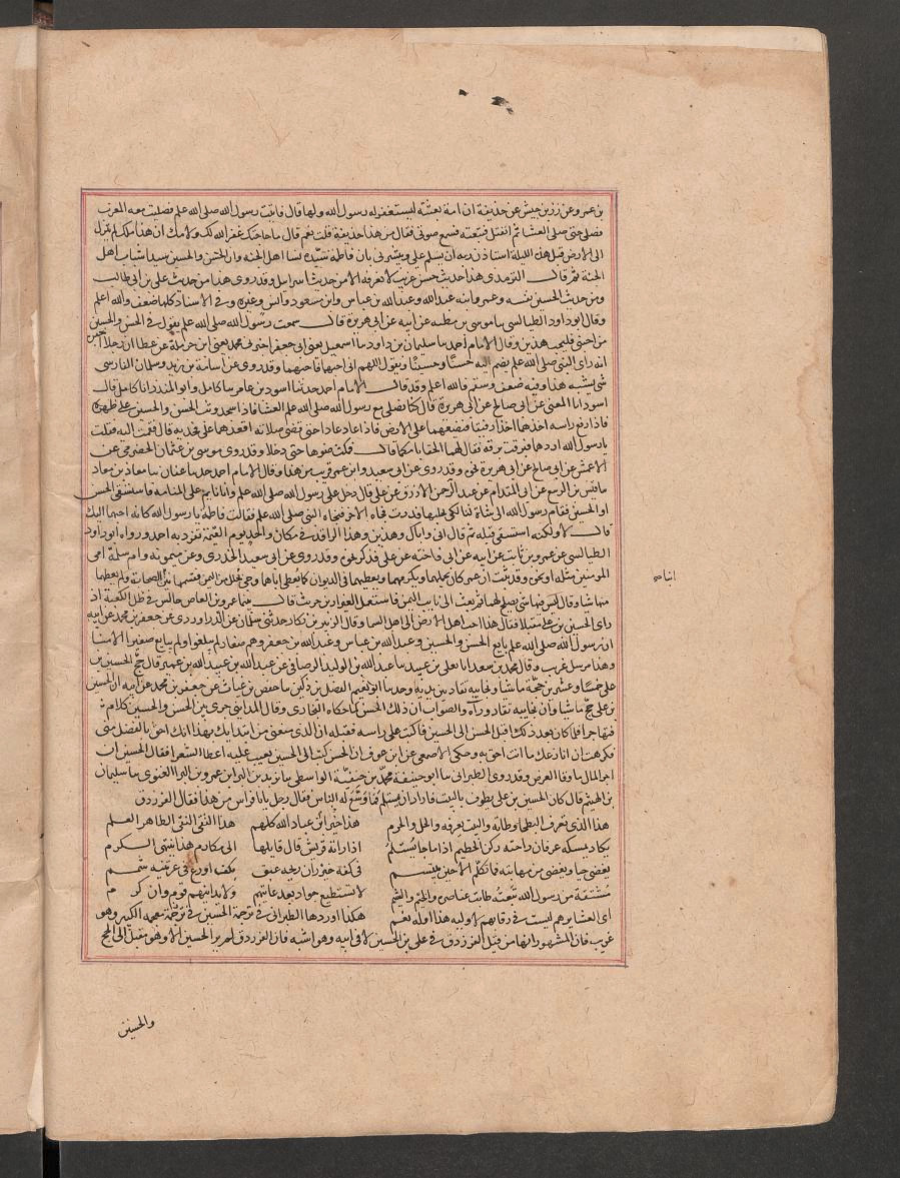 بن عمرو عن زر بن حبيش عن حذيفة ان امه بعثته ليستغفر له رسول الله ولها قال فاتيت رسول الله صلى الله علم فصليت معه المغرب
فصلى حتى صلى العشا ثم انفتل فتبعته فسمع صوتى فقال من هذا حذيفة قلت نعم قال ما حاجتك غفر الله لك ولامك ان هذا ملك لم ينزل
الى الارض قبل هذه الليلة استاذن ربه ان يسلم على ويبشرنى بان فاطمة سيدة نسا اهل الجنة وان الحسن والحسين سيدا شباب اهل
الجنة ثم قال الترمذى هذا حديث حسن غريب لا نعرفه الا من حديث اسرايل وقد روى هذا من حديث على بن ابى طالب
ومن حديث الحسين نفسه وعمر وابنه عبد الله وعبد الله بن عباس وابن مسعود وانس وغيره وفى الاسناد كلها ضعف والله اعلم
وقال ابو داود الطيالسى ما موسى بن مطيه عن ابيه عن ابى هريرة قال سمعت رسول الله صلى الله علم يقول فى الحسن والحسين
من احبنى فليحب هذين وقال الامام احمد ما سليمان بن داود ما اسمعيل يعنى ابى جعفر اخبرنى محمد يعنى ابن حرملة عن عطا ان رجلا اخبره
انه راى النبى صلى الله علم يضم اليه حسنا وحسينا ويقول اللهم انى احبهما فاحبهما وقد روى عن اسامة بن زيد وسلمان الفارسى
شى يشبه هذا وفيه ضعف وسقم فالله اعلم وقد قال الامام احمد حدثنا اسود بن عامر ما كامل وابو المنذر انا كامل قال
اسود انا المعنى عن ابى صالح عن ابى هريرة قال كنا نصلى مع رسول الله صلى الله علم العشا فاذا سجد وثب الحسن والحسين على ظهره
فاذا رفع راسه اخذهما اخذا رفيقا فيضعهما على الارض فاذا عاد عادا حتى قضى صلاته اقعدهما على فخديه قال فقمت اليه فقلت
يا رسول الله اردهما فبرقت برقة فقال لهما الحقا بامكما قال فمكث ضوها حتى دخلا وقد روى موسى بن عثمان الحضرمى عن
الاعمش عن ابى صالح عن ابى هريرة نحوه وقد روى عن ابى سعيد وابن عمر قريب من هذا وقال الامام احمد حدثنا عفان ما معاذ بن معاذ
ما قيس بن الربيع عن ابى المقدام عن عبد الرحمن الازرق عن على قال دخل على رسول الله صلى الله علم وانا نايم على المنامه فاستسقى الحسن
او الحسين فقام رسول الله الى شاة لنا بكى فحلبها فدرت فجاه الاخر فنحاه النبى صلى الله علم فقالت فاطمة يا رسول الله كانه احبهما اليك
قال لا ولكنه استسقى قبله ثم قال انى واياك وهذين وهذا الراقد فى مكان واحد يوم القيمة تفرد به احمد ورواه ابو داود
الطيالسى عن عمرو بن ثابت عن ابيه عن ابى فاخته عن على فذكر نحوه وقد روى عن ابى سعيد الخدرى وعن ميمونه وام سلمة امى
المومنين مثله او نحوه وقد ثبت ان عمر كان يحملهما ويكرمهما ويعطيهما فى الديوان كما يعطى اباهما وجى بحلل من اليمن فقسمها بين الصحابة ولم يعطهما
منها شيا وقال ليس فيها شى يصلح لهما فبعث الى نايب اليمن فاستعمل
العيزار بن حريث قال بينما عمرو بن العاص جالس فى ظل الكعبة اذ
راى الحسين بن على مقبلا فقال هذا احب اهل الارض الى اهل السما وقال الزبير بن بكار حدثنى سليمان عن الدراوردى عن جعفر بن محمد عن ابيه
ان رسول الله صلى الله علم بايع الحسن والحسين وعبد الله بن عباس وعبد الله بن جعفر وهم صغار لم يبلغوا ولم يبايع صغيرا الا منا
وهذا مرسل غريب وقال محمد بن سعد انا يعلى بن عبيد ما عبد الله بن الوليد الوصافى عن عبد الله بن عبيد الله بن عمير قال حج الحسين بن
على خمسا وعشرين حجة ماشيا ونجايبه تقاد بين يديه وحدثنا ابو نعيم الفضل بن دكين ما حفص بن غياث عن جعفر بن محمد عن ابيه ان الحسين
بن على حج ماشيا وان نجايبه تقاد وراه والصواب ان ذلك الحسن كما حكاه البخارى وقال المداينى جرى بين الحسن والحسين كلام
فتهاجرا فلما كان بعد ذلك اقبل الحسن الى الحسين فاكب على راسه فقبله ان الذى منعنى من ابتدايك بهذا انك احق بالفضل منى
فكرهت ان انازعك ما انت احق به وحكى الاصمعى عن ابن عوف ان الحسن كتب الى الحسين يعيب عليه اعطا الشعرا فقال الحسين ان
احب المال ما وقا العرض وقد روى الطبرانى ما ابو حنيفة محمد بن حنيفة الواسطى ما يزيد بن البرا بن عمرو بن البرا الغنوى ما سليمان
بن الهيثم قال كان الحسين بن على يطوف بالبيت فاراد ان يستلم فما وسع له الناس فقال رجل يا ابا فراس من هذا فقال الفرزدق
هذا الذى تعرف البطحا وطاته والبيت يعرفه والحل والحرم هذا خير ابن عباد الله كلهم هذا النقى التقى الطاهر العلم
يكاد يمسكه عرفان راحته ركن الحطيم اذا ما جا يستلم اذا راته قريش قال قايلها الى مكارم هذا ينتهى الكرم
يغضى حيا ويغضى من مهابته فما تكلم الا حين يبتسم فى كفه خيزران ريحه عبق بكف اورع فى عرنينه شمم
مشتقة من رسول الله نبعته طابت عناصره والخيم والشيم لا يستطيع جواد بعد غايتهم ولا يدانيهم قوم وان كرم
اى العشاير هم ليست فى رقابهم لاوليه هذا اوله نعم هكذا اوردها الطبرانى فى ترجمة الحسين فى معجمه الكبير وهو
غريب فان المشهور انها من قيل الفرزدق فى على بن الحسين لا فى ابيه وهو اشبه فان الفرزدق لم ير الحسين الا وهو مقبل الى الحج
والحسين